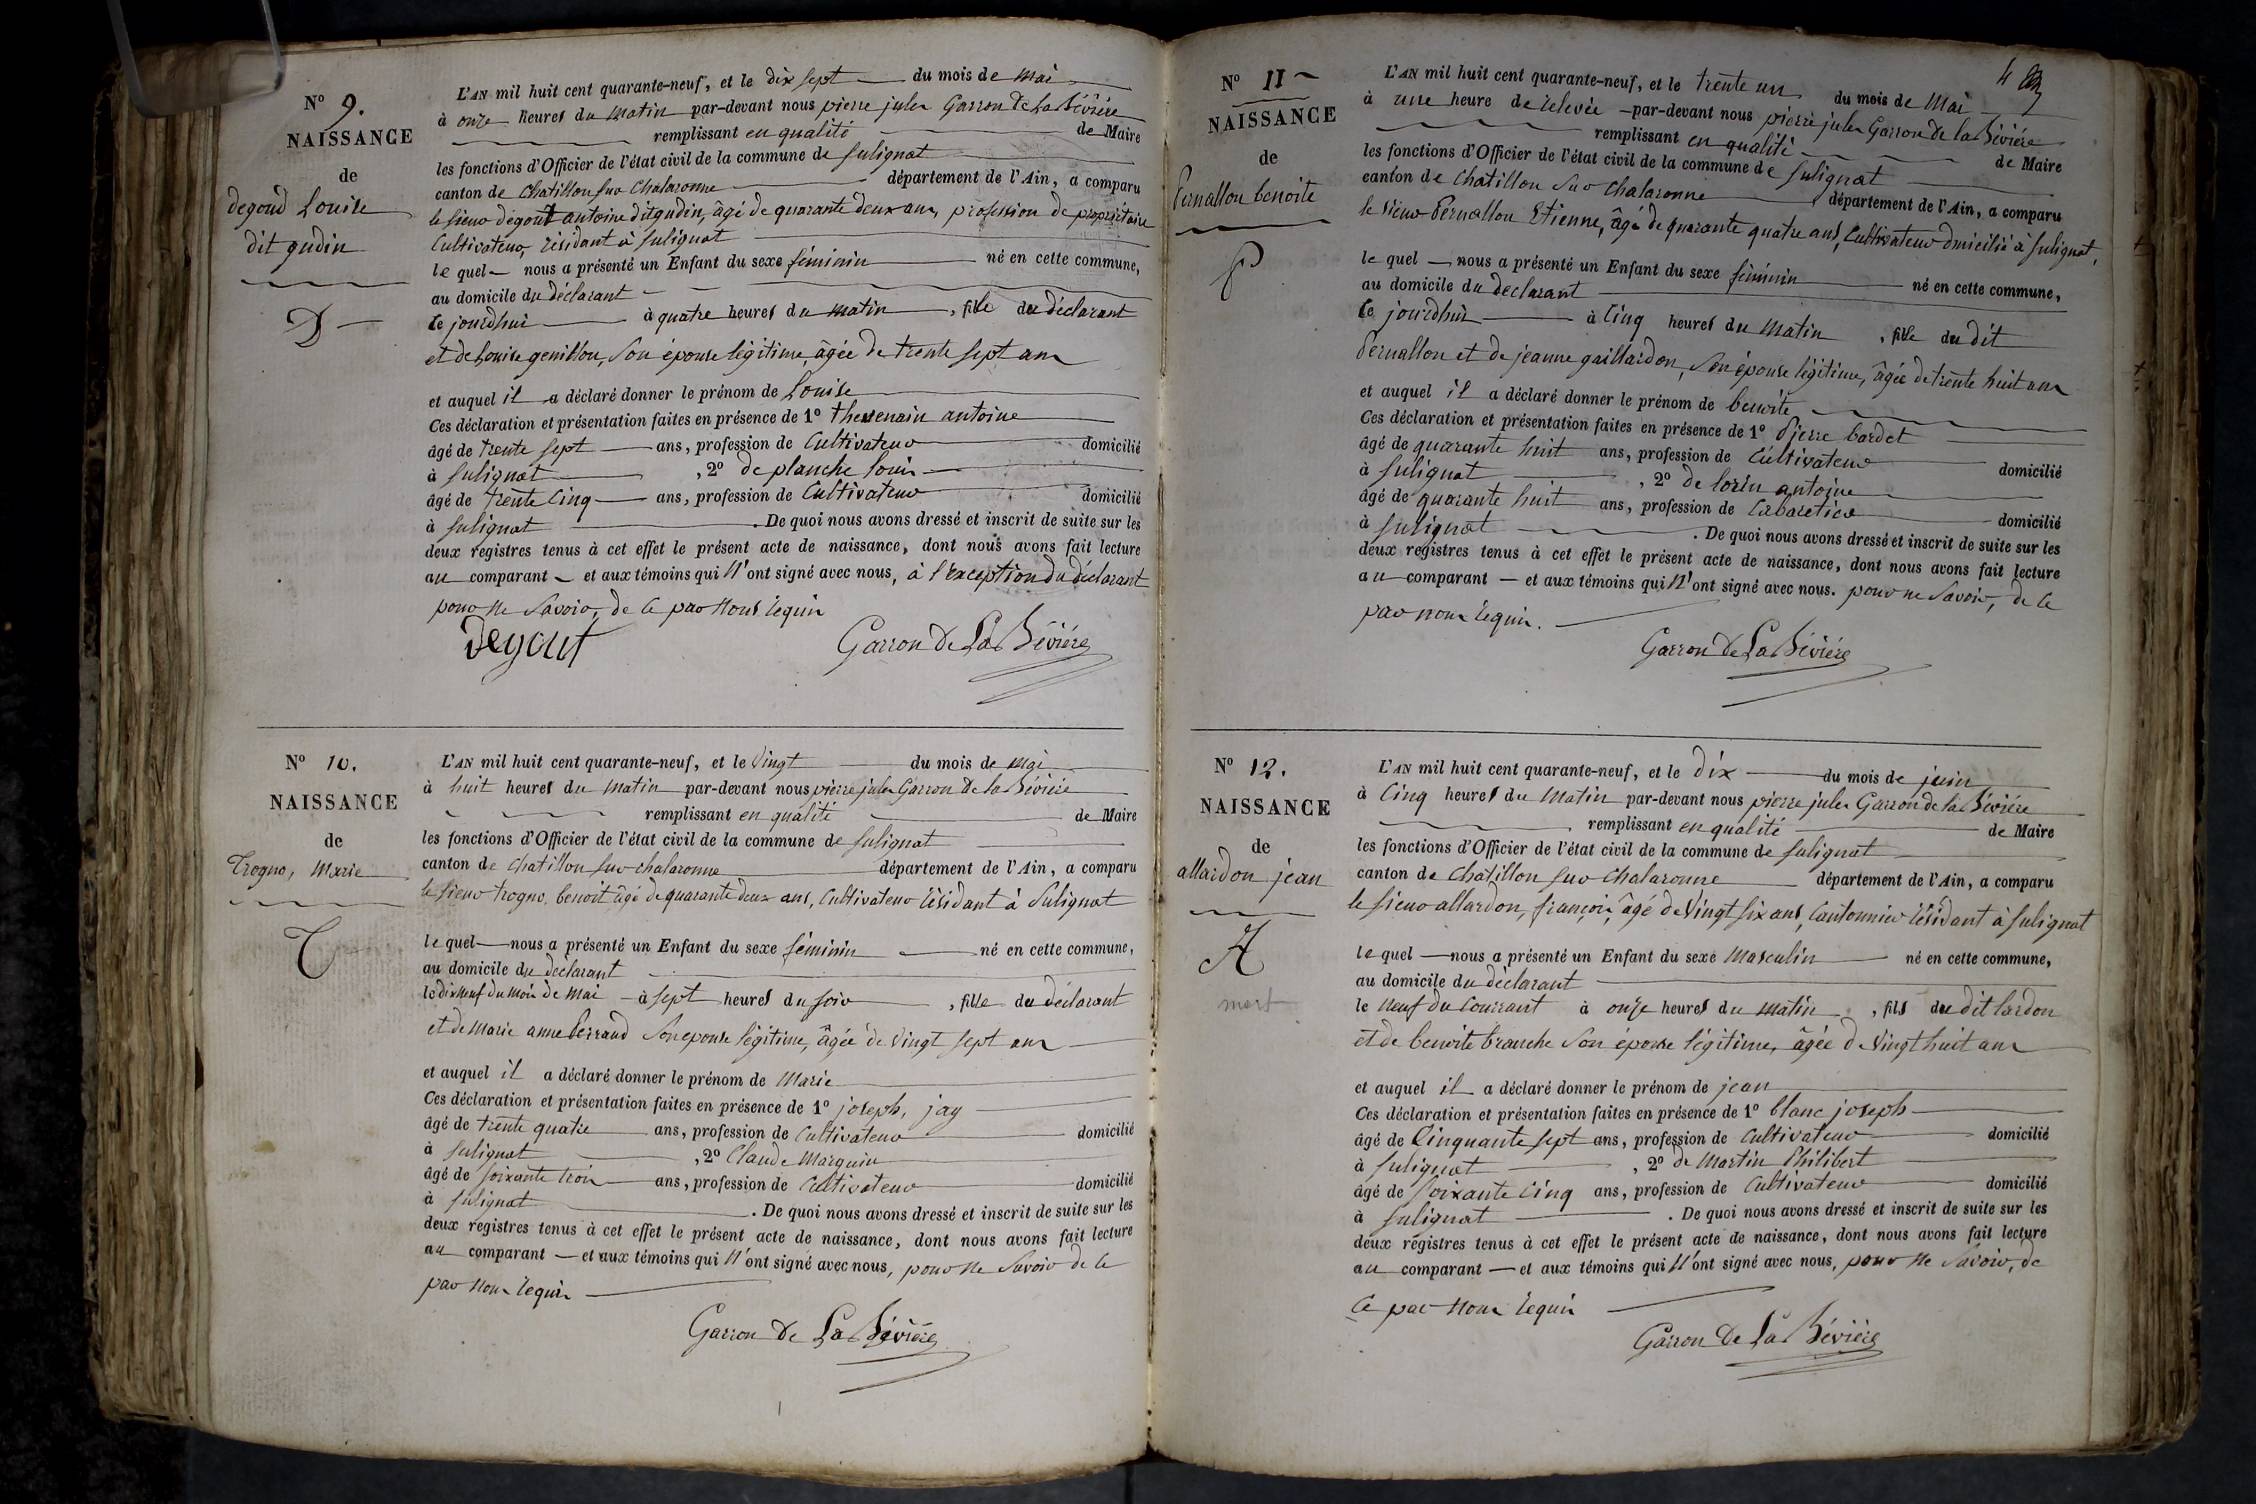 Nº 9.
NAISSANCE
de
degoud Louise
dit gudin
D
L'AN mil huit cent quarante-neuf, et le dix sept du mois de Mai
à onze heures du Matin par-devant nous pierre jules Garron De La Bévière
remplissant en qualité de Maire
les fonctions d'Officier de l'état civil de la commune de Sulignat
canton de Chatillon sur Chalaronne département de l'Ain, a comparu
le sieur degout antoine dit gudin, âgé de quarante deux ans, profession de propriétaire
Cultivateur, résidant à Sulignat
lequel nous a présenté un Enfant du sexe féminin né en cette commune,
au domicile du déclarant
ce jourdhui à quatre heures du matin, fille du déclarant
et de Louise genillon, son épouse légitime, âgée de trente sept ans
et auquel il a déclaré donner le prénom de Louise
Ces déclaration et présentation faites en présence de 1º thevenain antoine
âgé de trente sept ans, profession de Cultivateur domicilié
à Sulignat, 2º de planche louis
âgé de trente cinq ans, profession de Cultivateur domicilié
à Sulignat. De quoi nous avons dressé et inscrit de suite sur les
deux registres tenus à cet effet le présent acte de naissance, dont nous avons fait lecture
au comparant et aux témoins qui N'ont signé avec nous, à l'exception du déclarant
pour ne savoir, de ce par Nous requis
Degout Garron De La Bévière
Nº 10.
NAISSANCE
de
trogno, Marie
T
L'AN mil huit cent quarante-neuf, et le Vingt du mois de Mai
à huit heures du Matin par-devant nous pierre jules Garron De la Bévière
remplissant en qualité de Maire
les fonctions d'Officier de l'état civil de la commune de Sulignat
canton de Chatillon sur chalaronne département de l'Ain, a comparu
le sieur trogno, benoit âgé de quarante deux ans, Cultivateur résidant à Sulignat
lequel nous a présenté un Enfant du sexe féminin né en cette commune,
au domicile du declarant
le dix neuf du mois de Mai à sept heures du soir, fille du déclarant
et de Marie anne Perraud son épouse légitime, âgée de Vingt sept ans
et auquel il a déclaré donner le prénom de Marie
Ces déclaration et présentation faites en présence de 1º joseph, jay
âgé de trente quatre ans, profession de Cultivateur domicilié
à Sulignat, 2º Claude Marguin
âgé de soixante trois ans, profession de Cultivateur domicilié
à Sulignat. De quoi nous avons dressé et inscrit de suite sur les
deux registres tenus à cet effet le présent acte de naissance, dont nous avons fait lecture
au comparant et aux témoins qui N'ont signé avec nous, pour ne Savoir de ce
par Nous requis
Garron De La Bévière
4
Nº 11
NAISSANCE
de
Pernallon benoite
P
L'AN mil huit cent quarante-neuf, et le trente un du mois de Mai
à une heure de relevée par-devant nous pierre jules Garron De la Bévière
remplissant en qualité de Maire
les fonctions d'Officier de l'état civil de la commune de Sulignat
canton de Chatillon sur Chalaronne département de l'Ain, a comparu
le sieur Pernallon Etienne, âgé de quarante quatre ans, Cultivateur dmicilié à Sulignat,
lequel nous a présenté un Enfant du sexe féminin né en cette commune,
au domicile du declarant
ce jourdhui à Cinq heures du Matin, fille du dit
Pernallon et de jeanne gaillardon, son épouse légitime, âgée de trente huit ans
et auquel il a déclaré donner le prénom de benoite
Ces déclaration et présentation faites en présence de 1º Pierre bardet
âgé de quarante huit ans, profession de Cultivateur domicilié
à Sulignat, 2º de lorin antoine
âgé de quarante huit ans, profession de Cabaretier domicilié
à Sulignat. De quoi nous avons dressé et inscrit de suite sur les
deux registres tenus à cet effet le présent acte de naissance, dont nous avons fait lecture
au comparant et aux témoins qui N'ont signé avec nous. pour ne Savoir, de ce
par nous requis.
Garron De La Bévière
Nº 12.
NAISSANCE
de
allardon jean
A
mort
L'AN mil huit cent quarante-neuf, et le Dix du mois de juin
à Cinq heures du Matin par-devant nous pierre jules Garron de la Bévière
remplissant en qualité de Maire
les fonctions d'Officier de l'état civil de la commune de Sulignat
canton de Chatillon sur Chalaronne département de l'Ain, a comparu
le sieur allardon, françois, âgé de Vingt six ans, Cantonnier résidant à Sulignat
lequel nous a présenté un Enfant du sexe Masculin né en cette commune,
au domicile du déclarant
le Neuf du Courrant à onze heures du Matin, fils du dit lardon
et de benoite branche son épouse légitime, âgée de Vingt huit ans
et auquel il a déclaré donner le prénom de jean
Ces déclaration et présentation faites en présence de 1º blanc joseph
âgé de Cinquante sept ans, profession de Cultivateur domicilié
à Sulignat, 2º de Martin Philibert
âgé de soixante cinq ans, profession de Cultivateur domicilié
à Sulignat. De quoi nous avons dressé et inscrit de suite sur les
deux registres tenus à cet effet le présent acte de naissance, dont nous avons fait lecture
au comparant et aux témoins qui N'ont signé avec nous, pour ne Savoir, de
ce par Nous requis
Garron De La Bévière